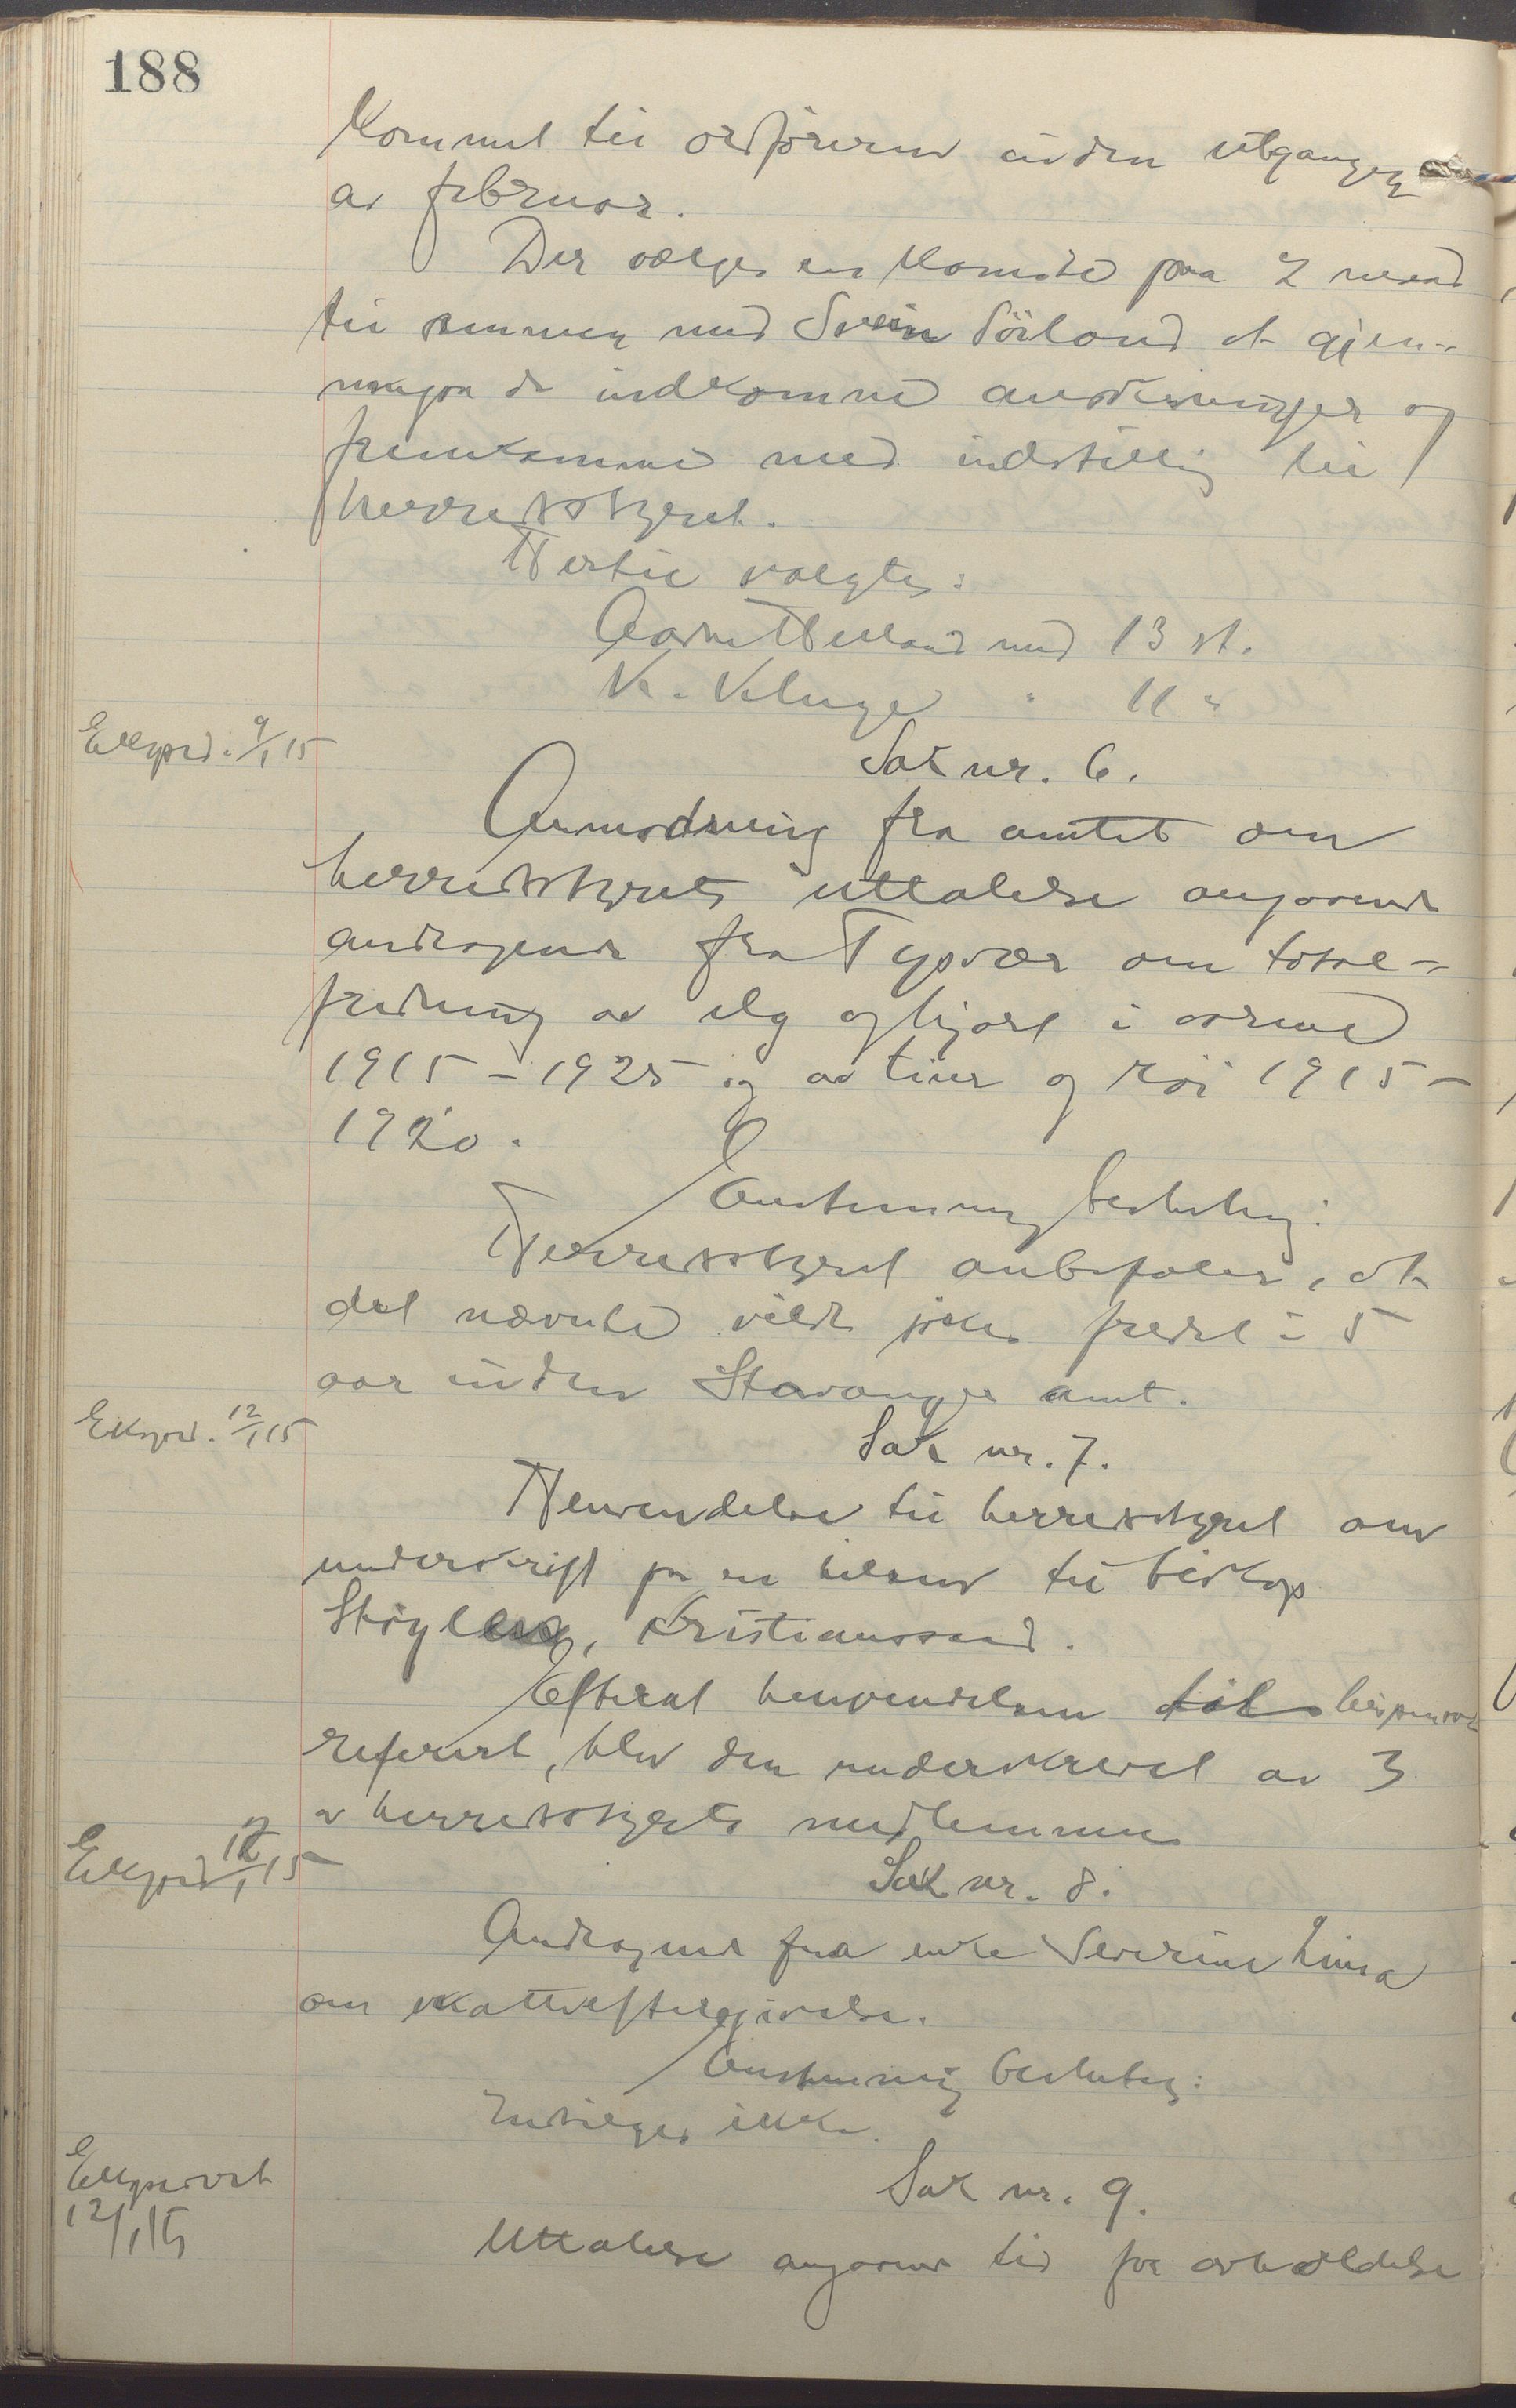 188
kommet til ordföreren inden utgangen
av februar.
Der vælges en komite paa 2 mænd
til sammen med Svein Söiland at gjen-
nemgaa de indkomne anvisninger og
fremkomme med indstilling til
herredsstyret.
Hertil valgtes:
med 13 st.
K. Kluge " 11 "
Eksped. 9/1 15
Sak nr. 6.
Anmodning fra amtet om
herredsstyrets uttalelse angaaende
andragende fra Tysvær om total-
fredning av elg og hjort i aarene
1915-1925 og av tiur og röi 1915-
1920.
Enstemmig beslutning:
Herredsstyret anbefaler, at
det nævnte vildt fredet i 5
aar inden Stavanger amt.
Eksped. 12/1 15
Sak nr. 7.
Henvendelse til herredsstyret om
underskrift paa en hilsen til biskop
Støylen, Kristianssand.
Efterat henvendelsen til bispen var
referert, blev den underskrevet av 3
av herredsstyrets medlemmer
Eksped 12/1 15
Sak nr. 8.
Andragende fra enke Severine Lima
om skatteeftergivelse.
Enstemmig beslutning:
Indvilges ikke.
Ekspedert
12/1 15
Sak nr. 9.
Uttalelse angaaende tid for avholdelse